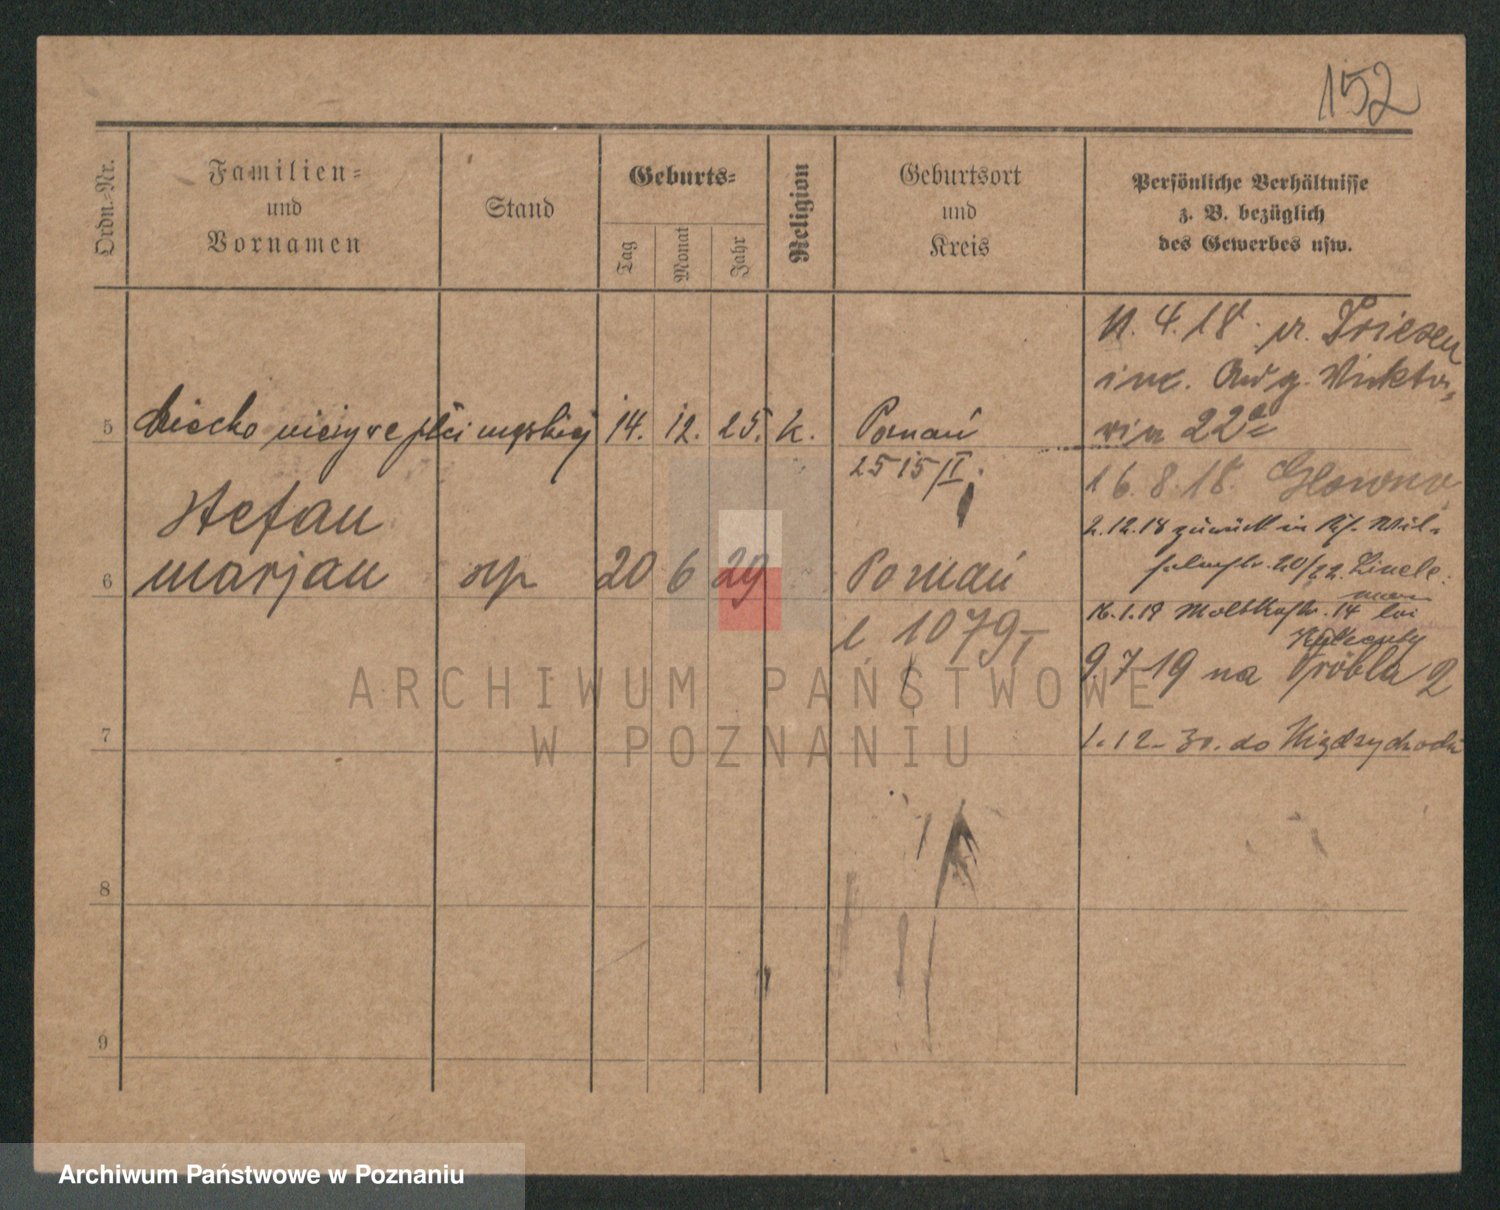 152
Ordn.-Nr.
Familien-
und
Vornamen
Stand
Geburts-
Tag
Monat
Jahr
Religion
Geburtsort
und
Kreis
Persönliche Verhältnisse
z. B. bezüglich
des Gewerbes usw.
5 dziecko nieżywe płci męskiej 14. 12. 25. k. Poznań
2515/I.
Stefan
6 marjan 20 6 29 Poznań
l 1079 I
7
8
9
11.4.18. Driesen
Aug. Viktor
22
16.8.18. Glowno
2.12.18 zurück in Wil-
20/22.
16.1.19 Moltkestr. 14 bei
9.7-19 na Gröbla 2
1.12-30. do Międzychodu
ARCHIWUM PAŃSTWOWE
W POZNANIU
Archiwum Państwowe w Poznaniu